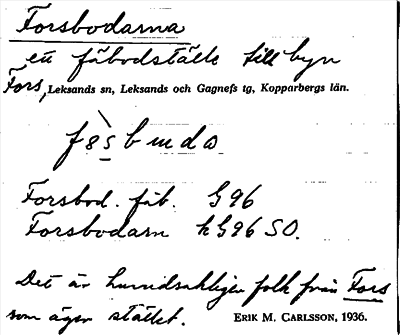 Forsbodarna
ett fäbodställe till byn
Fors, Leksands sn, Leksands och Gagnefs tg, Kopparbergs län.
Forsbod. fäb. G96
Forsbodarn hG96 SO.
Det är huvudsakligen folk från Fors
som äger stället. ERIK M. CARLSSON, 1936.